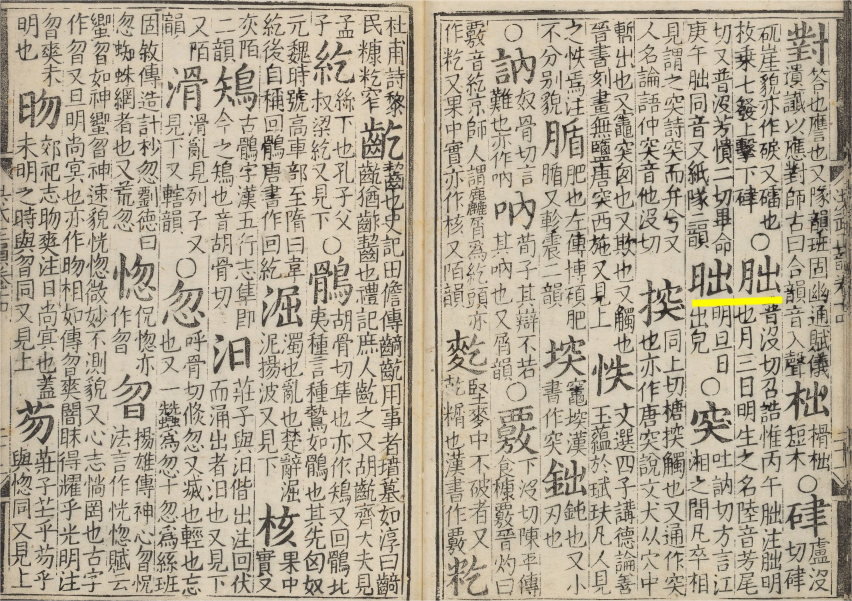 對答也譍也又隊韻班固幽通賦儀濆讖以應對師古曰合韻音入聲柮榾柮短木○硉盧没切硉
矹崖貌亦作硊又礌也枚乗七發上擊下硉○朏普没切召誥惟丙午朏注朏明也月三日明生之名陸音芳尾
切又普没芳憒二切畢命庚午朏同音又紙隊二韻昢明旦日出皃○突吐訥切方言江湘之間凡卒相
見謂之突詩突而弁兮又人名論語仲突音他没切揬同上切搪揬觸也又通作突也亦作唐突說文犬从穴中
暫出也又竈突囱也又欺也又觸也晉書刻畫無鹽唐突西施又見上怢文選四子講德論善玉蘊於珷玞凡人見
之怢焉注不分别貌腯肥也左傳博碩肥腯又軫震二韻堗竈堗漢書作突鈯鈍也又小刃也
○訥奴骨切言難也亦作吶吶荀子其辯不若其吶也又屑韻○覈下没切陳平傳食糠覈晉灼曰
覈音紇京師人謂麤屑為紇頭亦作籺又果中實亦作核又陌韻麧堅麥中不破者又麧糏也漢書作覈籺
杜甫詩黎民糠籺窄齕齧也史記田儋傳齮齕用事者墳墓如淳曰齮齕猶齚齧也禮記庶人齕之又胡齕齊大夫見
孟子紇絲下也孔子父叔梁紇又見下○鶻胡骨切隼也亦作鴩又回鶻北夷種言種摯如鶻也其先匈奴
元魏時號高車部至隋曰韋紇後自稱回鶻唐書作回紇淈濁也亂也楚辭淈泥揚波又見下核果中實又
亦陌二韻鴩古鶻字漢五行志隼即今之鴩也音胡骨切汩莊子與汨偕出注回伏而涌出者汩也又見下
又陌韻滑滑亂見列子又見下又轄韻○忽呼骨切倏忽又滅也輕也忘也又一蠶為忽十忽為絲班
固敘傳造計杪忽劉德曰忽蜘蛛網者也又荒忽惚怳惚亦作忽曶揚雄傳神心曶怳法言作恍惚賦云
蠁曶如神蠁曶神速貌恍惚微妙不測貌又心志惝罔也古字作曶又旦明尚冥也亦作昒相如傳曶爽闇昧得耀乎光明注
曶爽未明也昒郊祀志昒爽注日尚冥也蓋未明之時與曶同又見上芴莊子芒乎芴乎與惚同又見上